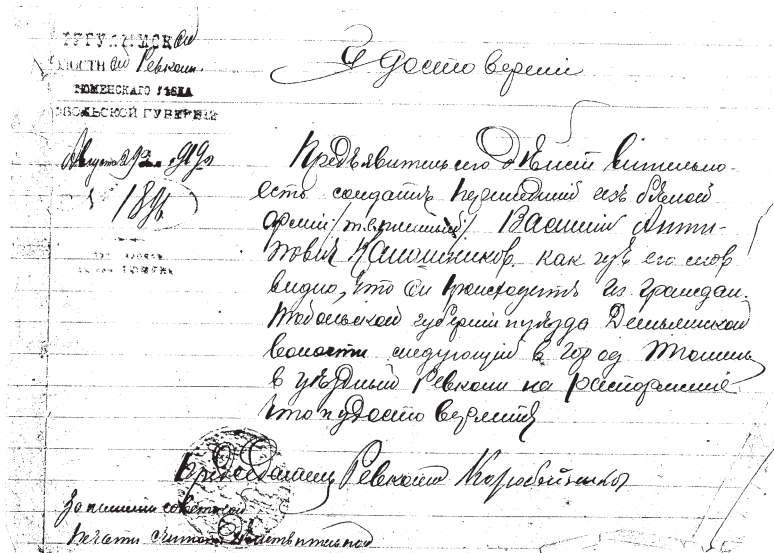 ТУГУЛЫМСКой
ВОЛОСТНой Ревком.
ТЮМЕНСКАГО УѢЗДА
ТОБОЛЬСКОЙ ГУБЕРНІИ
Августа 29 дня 1919
Удостоверенiе
Предъявитель сего дѣйствительно
есть солдатъ перешедший изъ бѣлой
армiи Василий Анти-
пович Калашников. как изъ его слов
видно, что он происходитъ из граждан.
Тобольской губернiи и уѣзда Демьянской
волости следующий в город Тюмень
в уѣздный Ревком на распоряженiе
что и удостоверяетъ
Председатель Ревкома Коробейников
За неимением советской
печати считать действительной